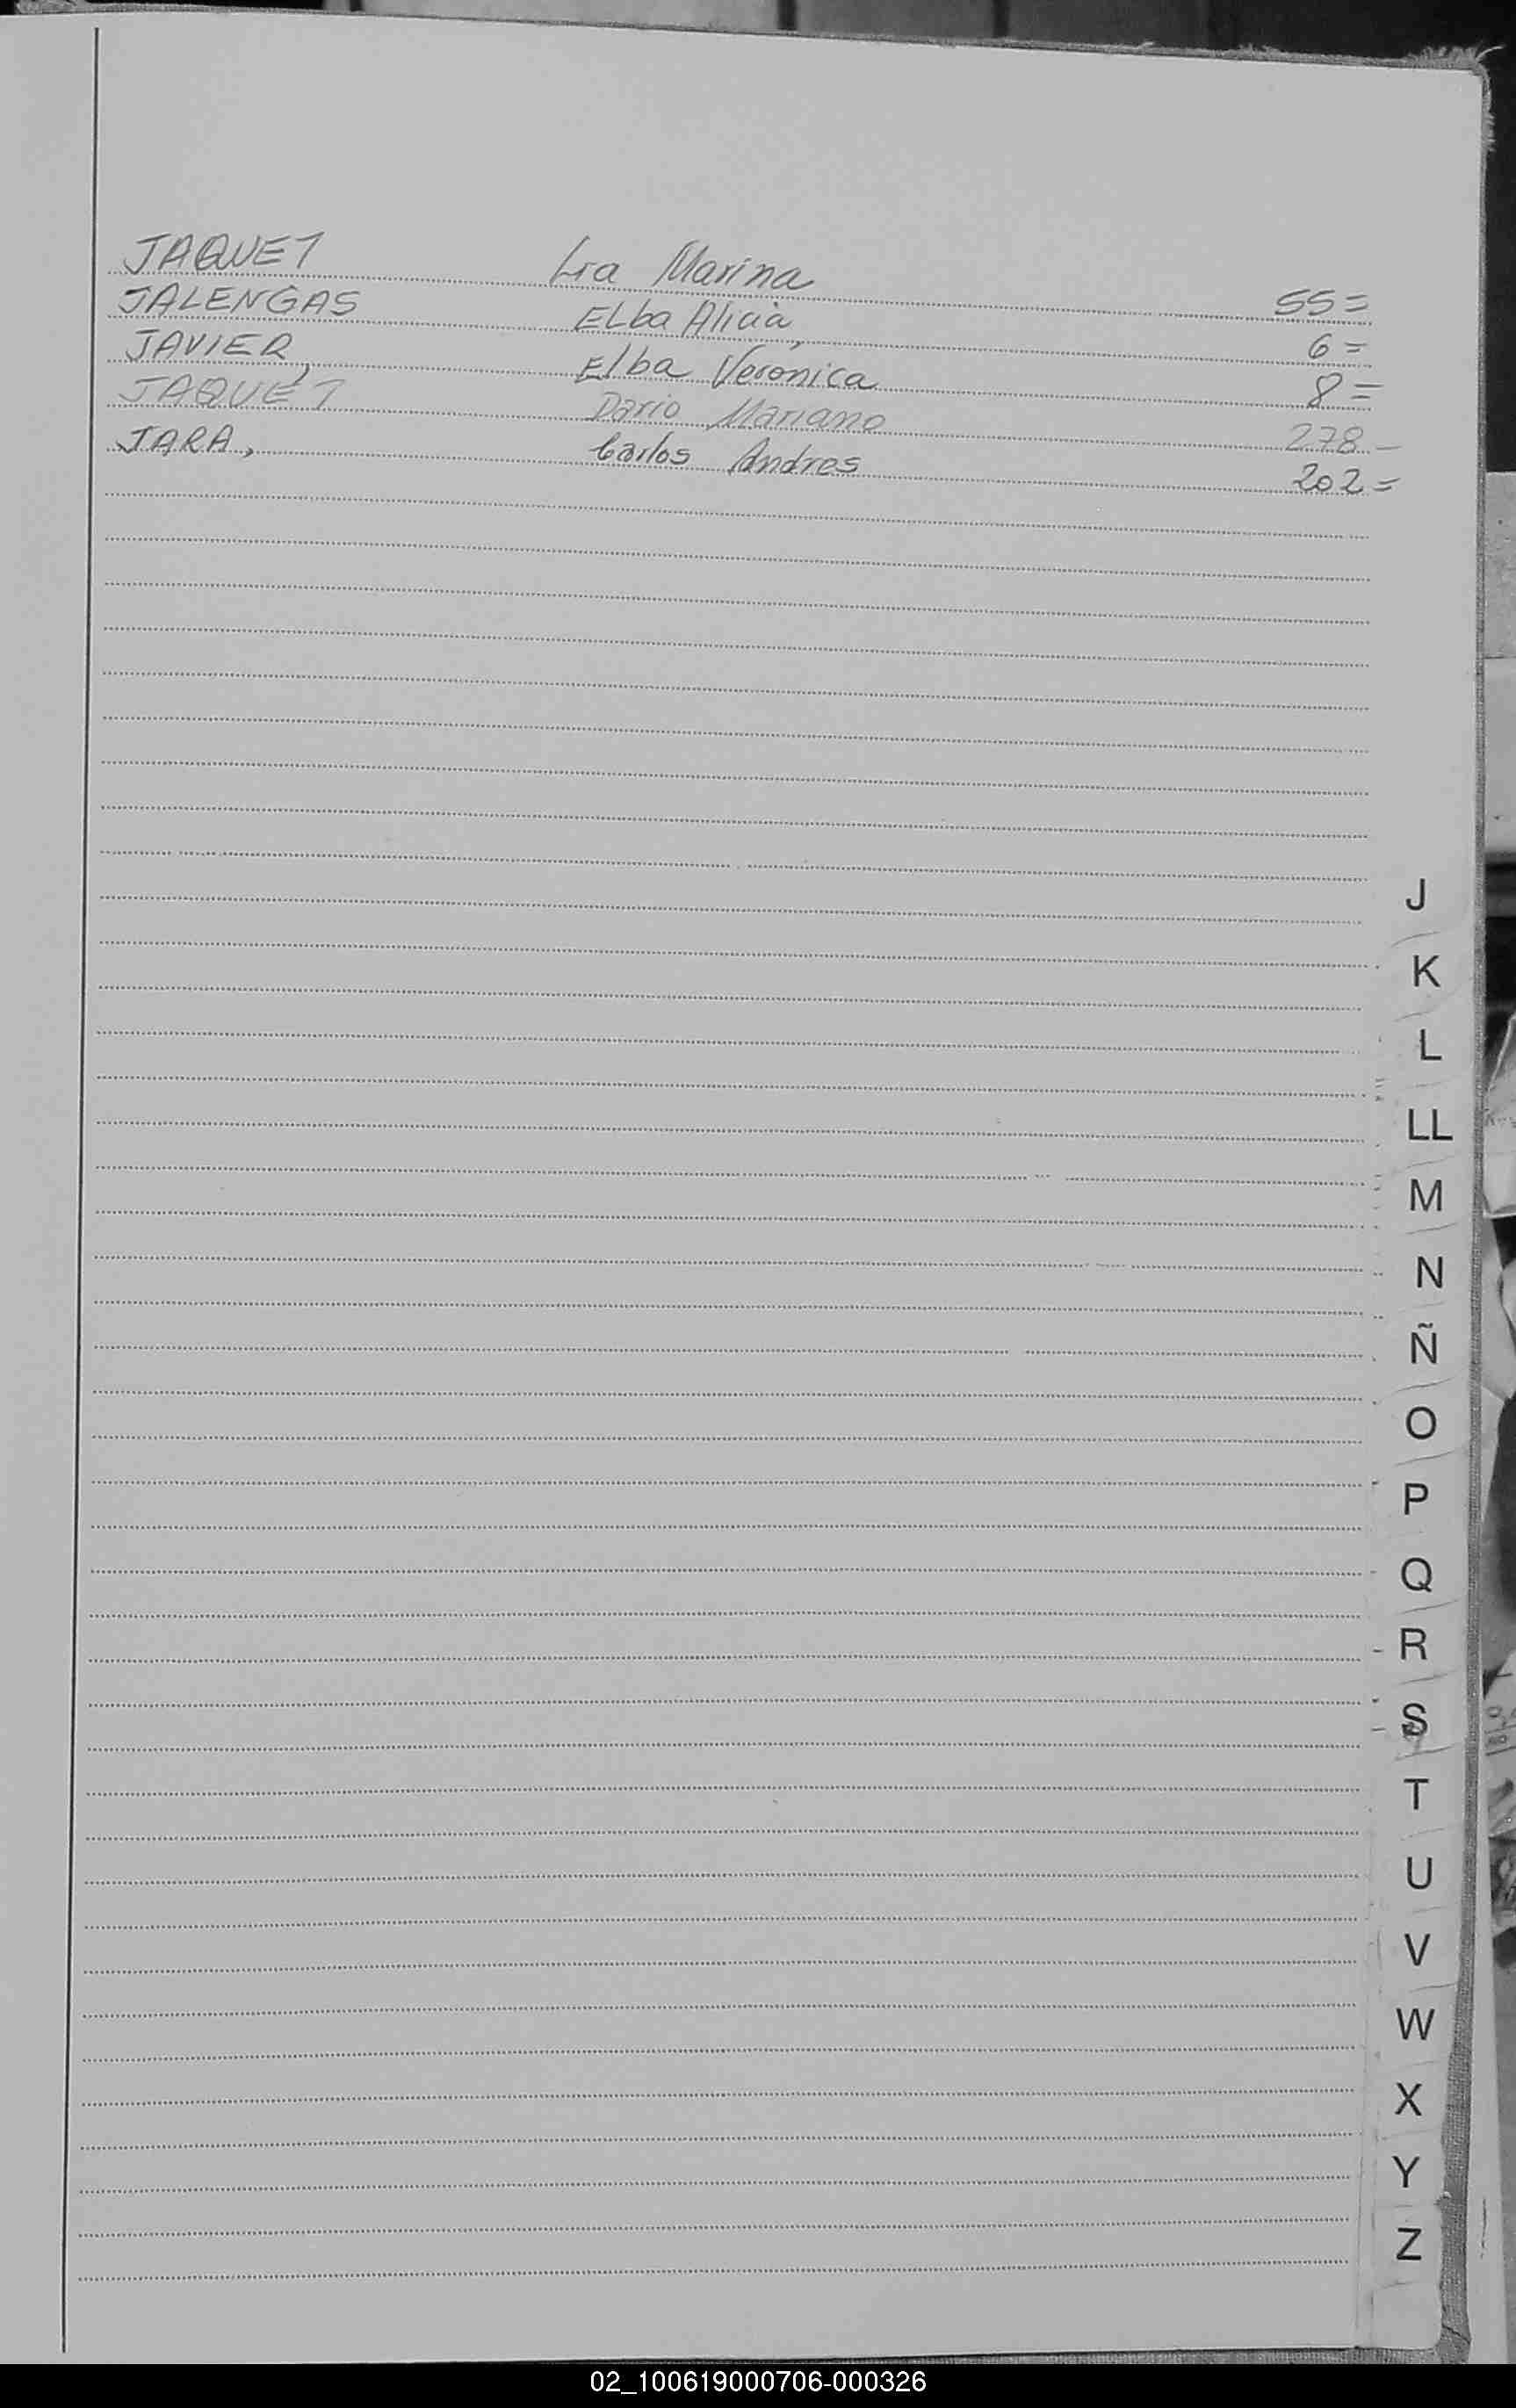 JAQUET Lia Marina 55=
JALENGAS Elba Alicia, 6=
JAVIER, Elba Veronica 8=
JAQUET Dario Mariano 278-
JARA, Carlos Andres 202=
J
K
L
LL
M
N
Ñ
O
P
Q
R
S
T
U
V
W
X
Y
Z
02_100619000706-000326